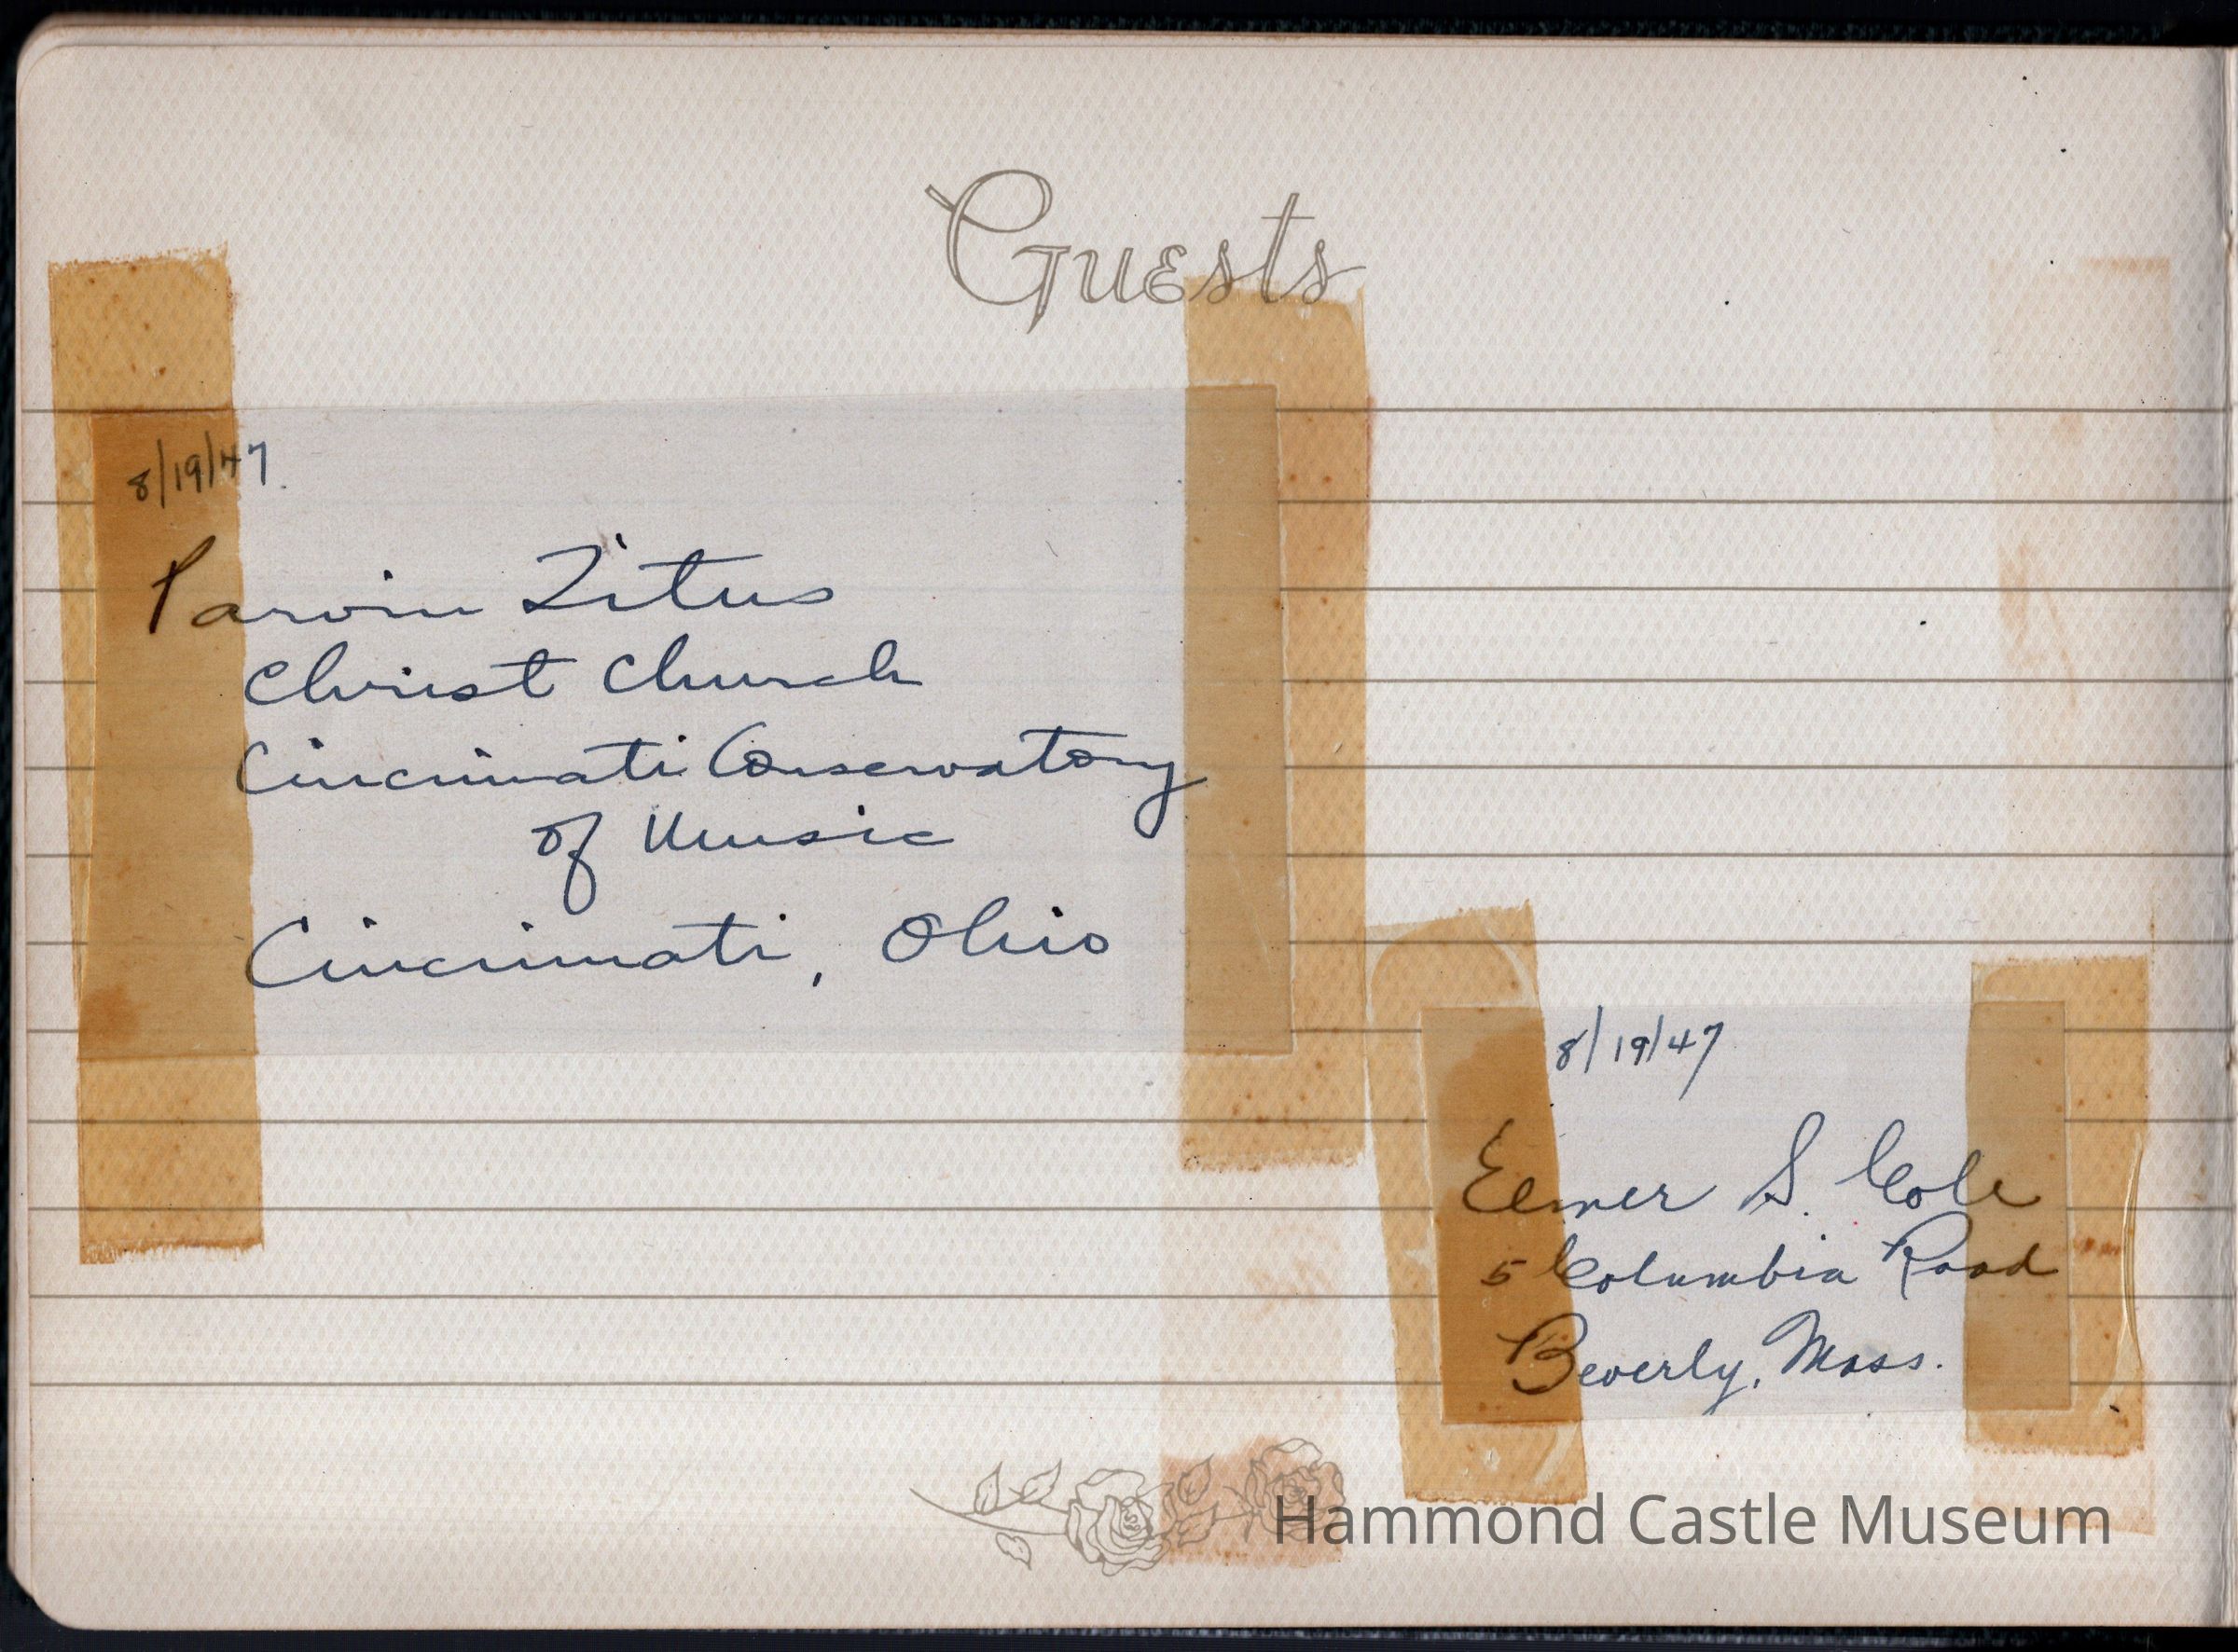 Guests
8/19/47
Parvin Titus
Christ Church
Cincinnati Conservatory
of Music
Cincinnati, Ohio
8/19/47
Elmer S. Cole
5 Columbia Road
Beverly, Mass.
Hammond Castle Museum